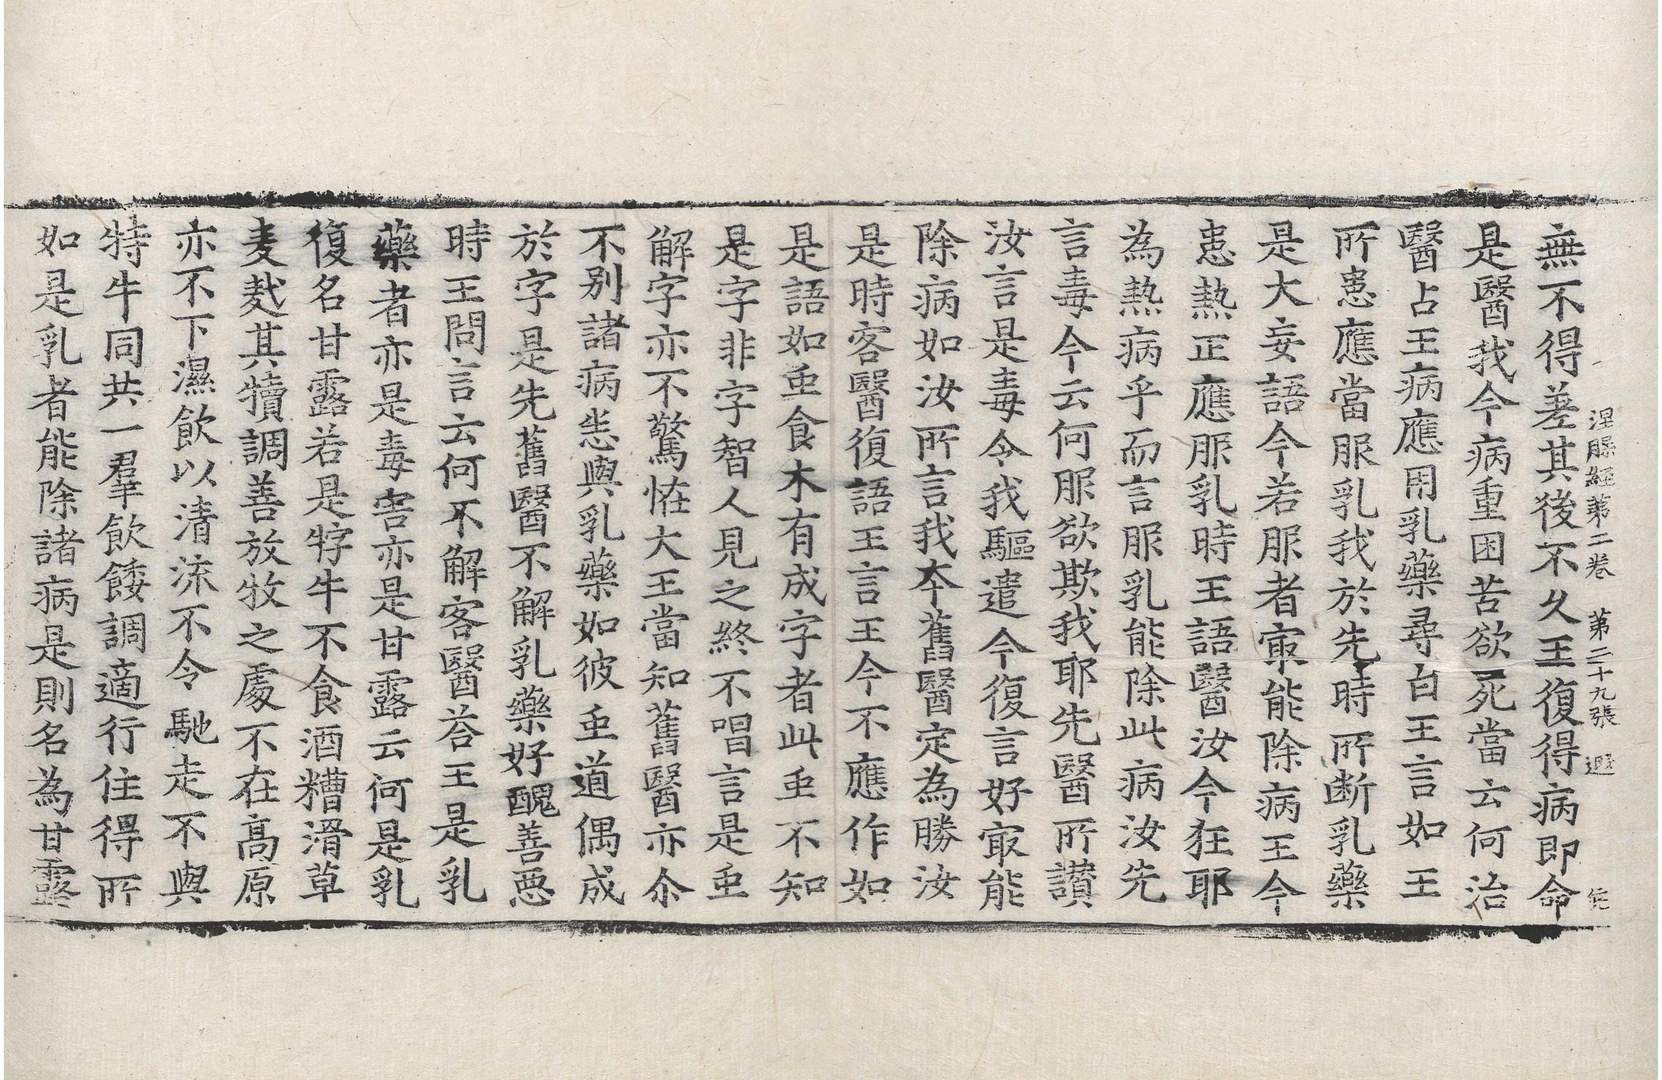 涅槃經第二卷 第二十九張 遐
無不得差其後不久王復得病即命
是醫我今病重困苦欲死當云何治
醫占王病應用乳藥尋白王言如王
所患應當服乳我於先時所断乳藥
是大妄語今若服者㝡能除病王今
患熱正應服乳時王語醫汝今狂耶
為熱病乎而言服乳能除此病汝先
言毒今云何服欲欺我耶先醫所讃
汝言是毒令我驅遣今復言好㝡能
除病如汝所言我夲舊醫定為勝汝
是時客醫復語王言王今不應作如
是語如䖝食木有成字者此䖝不知
是字非字智人見之終不唱言是䖝
解字亦不驚恠大王當知舊醫亦尒
不別諸病悉與乳藥如彼䖝道偶成
於字是先舊醫不解乳藥好醜善惡
時王問言云何不解客醫荅王是乳
藥者亦是毒害亦是甘露云何是乳
復名甘露若是牸牛不食酒糟滑草
麦𪌭其犢調善放牧之處不在高原
亦不下濕飲以清流不令馳走不與
特牛同共一羣飲餧調適行住得所
如是乳者能除諸病是則名為甘露